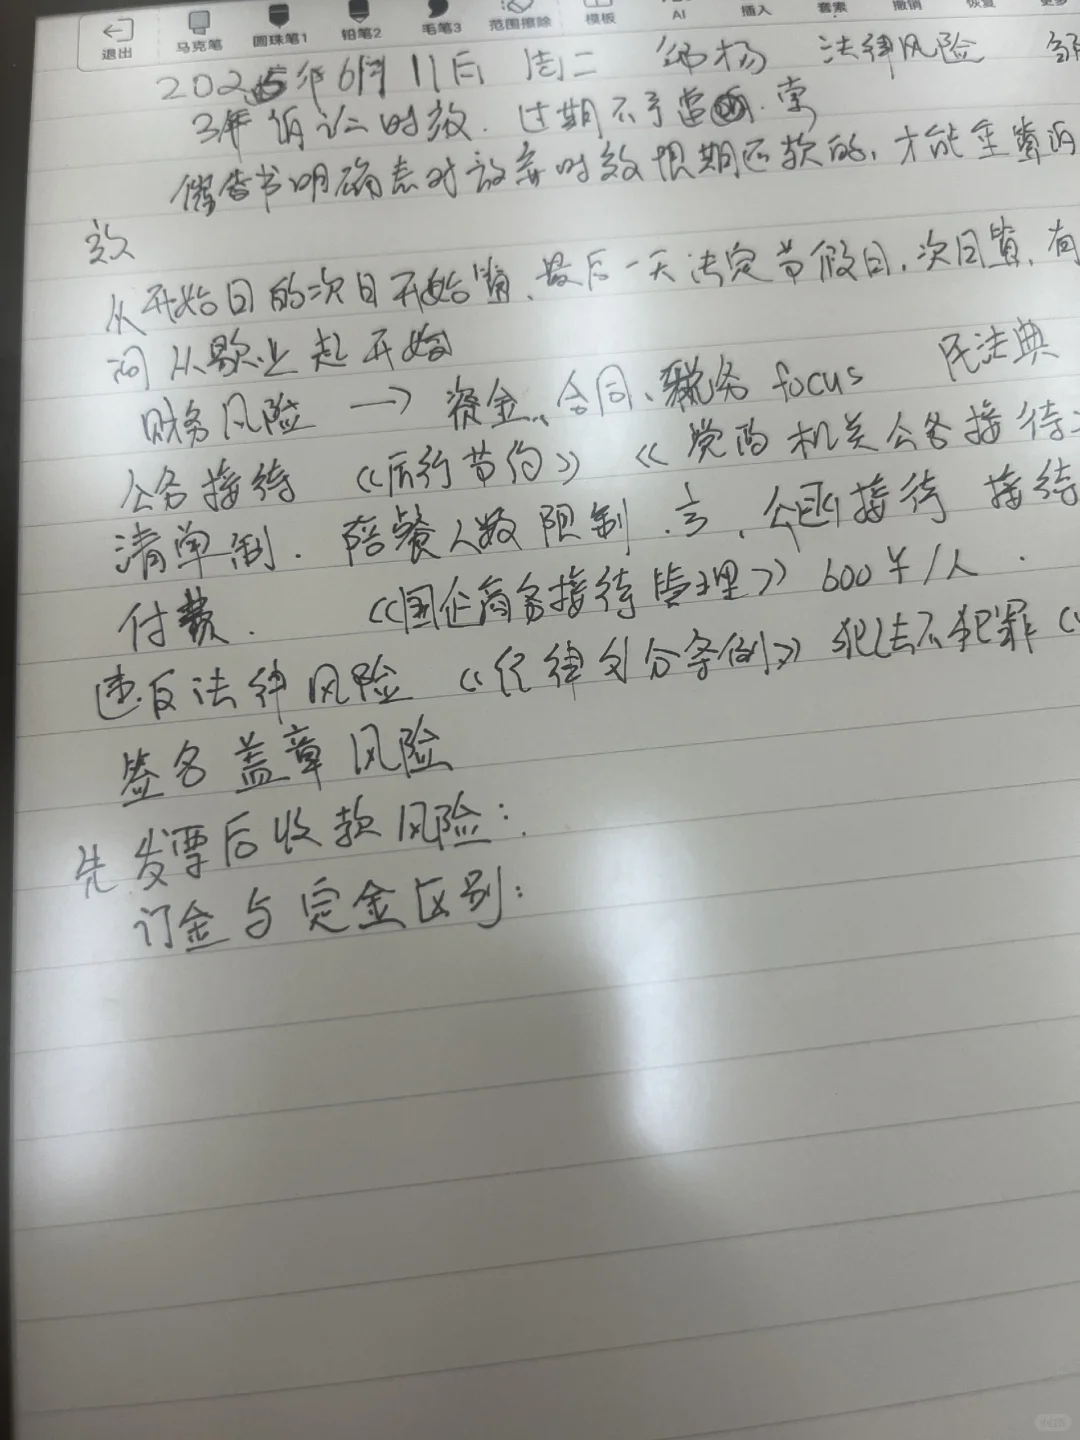 退出 马克笔 圆珠笔1 铅笔2 毛笔3 范围擦除 模板 AI 插入 套索 撤销 恢复 更多
2025年6月11日 周二 杨 法律风险
3年诉讼时效. 过期不予
催告书明确表对放弃时效恨期还款的, 才能重算
效
从开始日的次日开始算, 最后一天法定节假日, 次日算,
从歇业起开始
财务风险 → 资金、合同、税务 focus 民法典
公务接待 《厉行节约》 《党政机关公务接待
清单制. 陪餐人数限制. 公函接待 接待
付费. 《国企商务接待管理》 600半/人.
违反法律风险 《纪律处分条例》 犯法不犯罪
签名盖章风险
先发票后收款风险:
订金与定金区别: